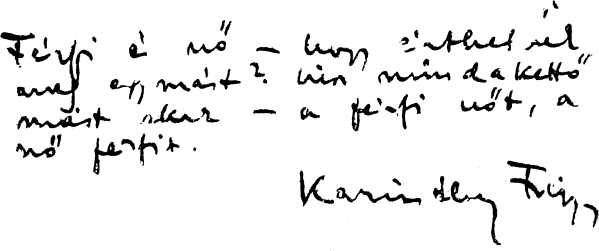 Férfi és nő – hogy érthetnék
meg egymást? Hisz mind a kettő
mást akar – a férfi nőt, a
nő férfit.
Karinthy Frigyes